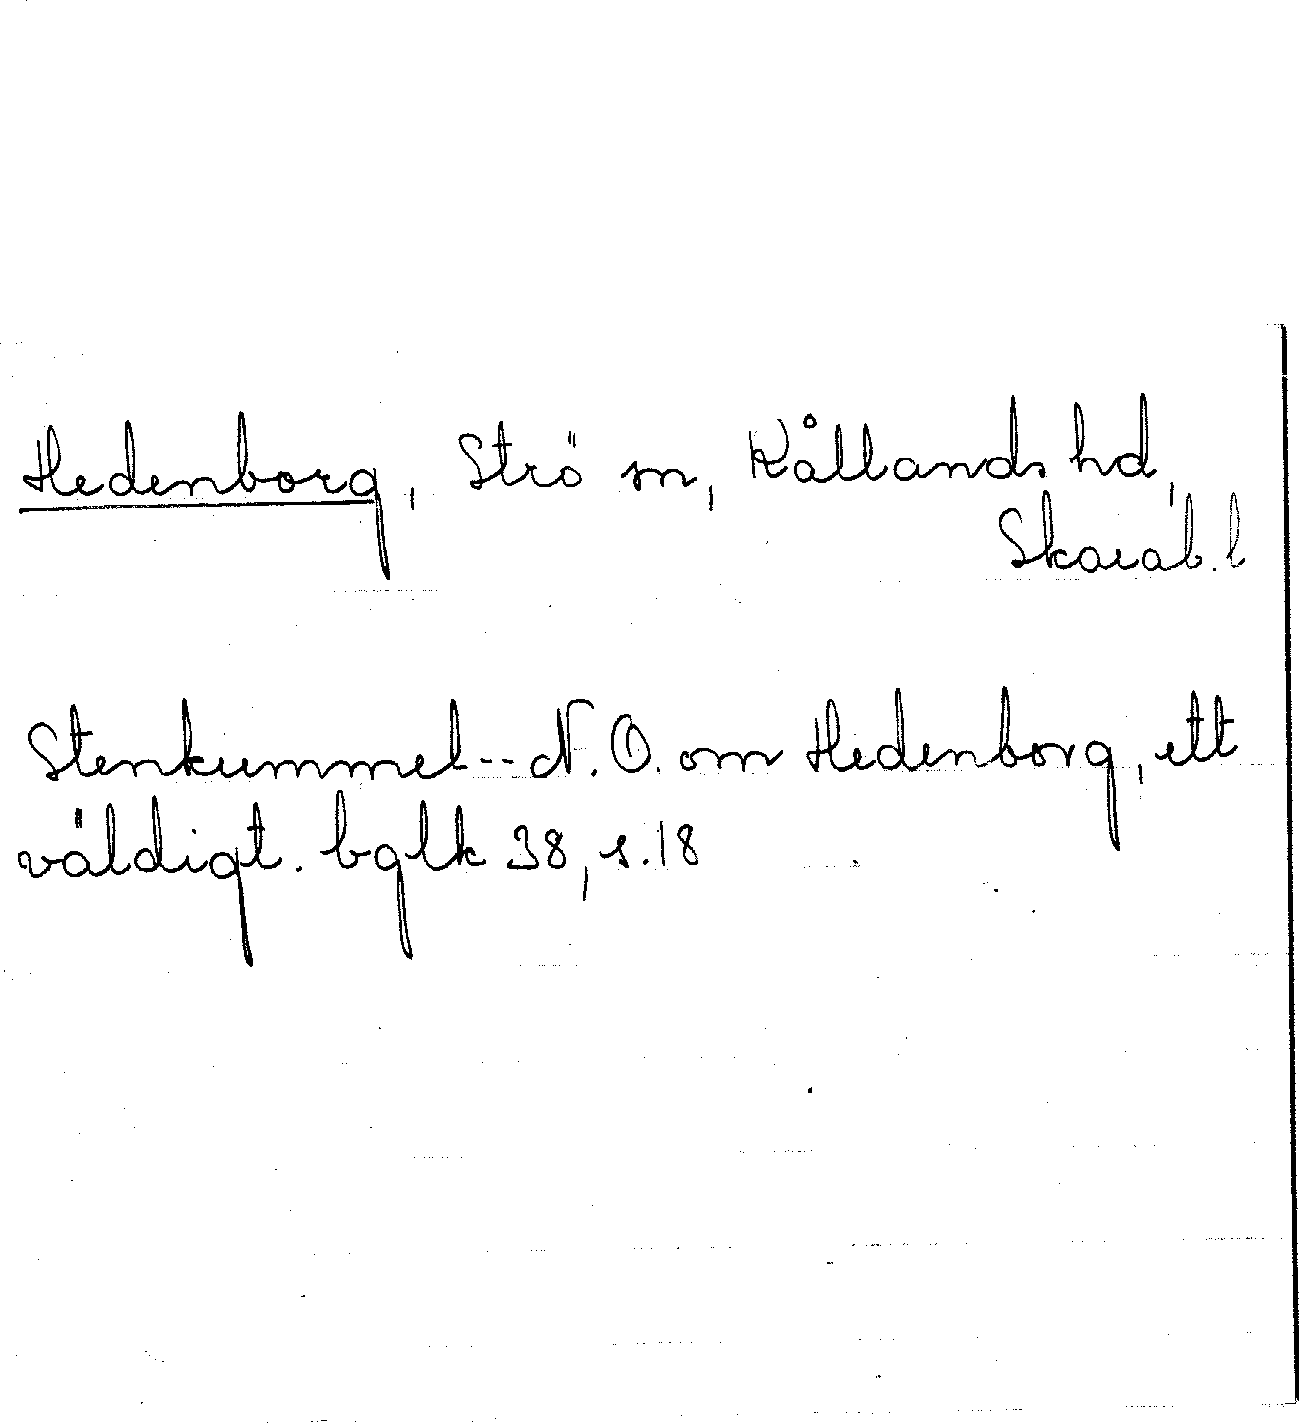 Hedenborg, Strö sn, Kållands hd,
Skarab. l
Stenkummel -- N. O. om Hedenborg, ett
väldigt. bglk 38, s. 18